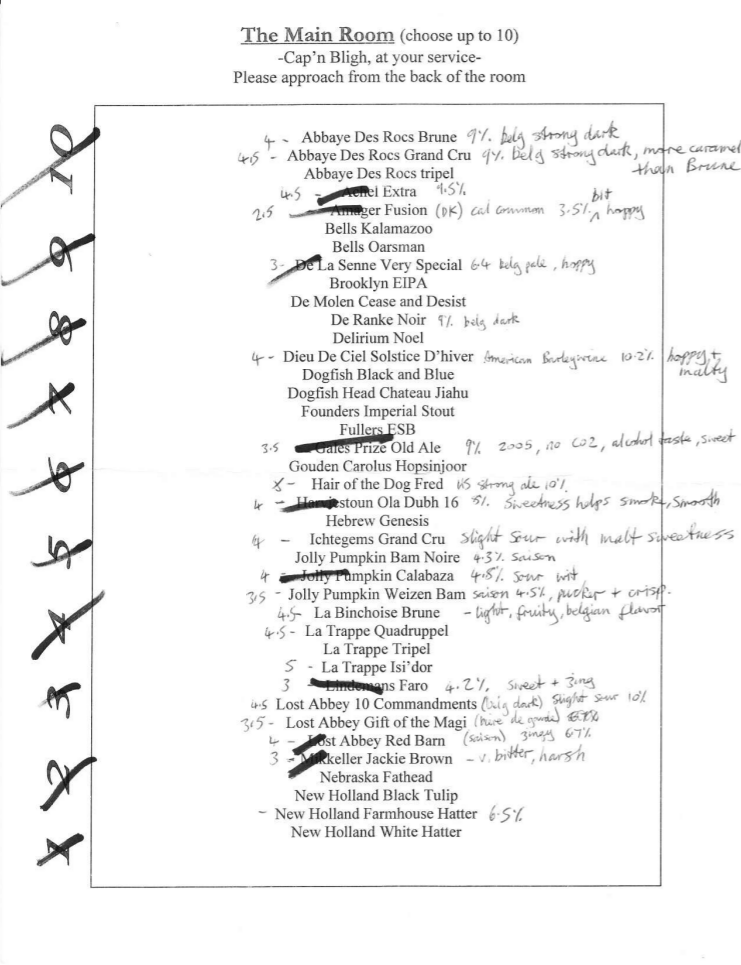 The Main Room (choose up to 10)
-Cap'n Bligh, at your service-
Please approach from the back of the room
4 - Abbaye Des Rocs Brune 9%. belg strong dark
4.5 - Abbaye Des Rocs Grand Cru 9%. belg strong dark, more caramel than Brune
Abbaye Des Rocs tripel
4.5 - Achel Extra 9.5%
2.5 - Amager Fusion (DK) cal common 3.5% bit hoppy
Bells Kalamazoo
Bells Oarsman
3 - De La Senne Very Special 6.4 belg pale, hoppy
Brooklyn EIPA
De Molen Cease and Desist
De Ranke Noir 9%. belg dark
Delirium Noel
4 - Dieu De Ciel Solstice D'hiver American Barleywine 10.2%. hoppy + malty
Dogfish Black and Blue
Dogfish Head Chateau Jiahu
Founders Imperial Stout
Fullers ESB
3.5 - Gales Prize Old Ale 9% 2005, no CO2, alcohol taste, sweet
Gouden Carolus Hopsinjoor
X - Hair of the Dog Fred US strong ale 10%.
4 - Harviestoun Ola Dubh 16 8%. Sweetness helps smoke, smooth
Hebrew Genesis
4 - Ichtegems Grand Cru slight sour with malt sweetness
Jolly Pumpkin Bam Noire 4.3% saison
4 - Jolly Pumpkin Calabaza 4.8%. sour wit
3.5 - Jolly Pumpkin Weizen Bam saison 4.5%, pucker + crisp.
4.5 - La Binchoise Brune - light, fruity, belgian flavor
4.5 - La Trappe Quadruppel
La Trappe Tripel
5 - La Trappe Isi'dor
3 - Lindemans Faro 4.2%, sweet + zing
4.5 Lost Abbey 10 Commandments (belg dark) slight sour 10%
3.5 - Lost Abbey Gift of the Magi (biere de garde)
4 - Lost Abbey Red Barn (saison) zingy 6.7%
3 - Mikkeller Jackie Brown - v. bitter, harsh
Nebraska Fathead
New Holland Black Tulip
- New Holland Farmhouse Hatter 6.5%
New Holland White Hatter
10
9
8
7
6
5
4
3
2
1